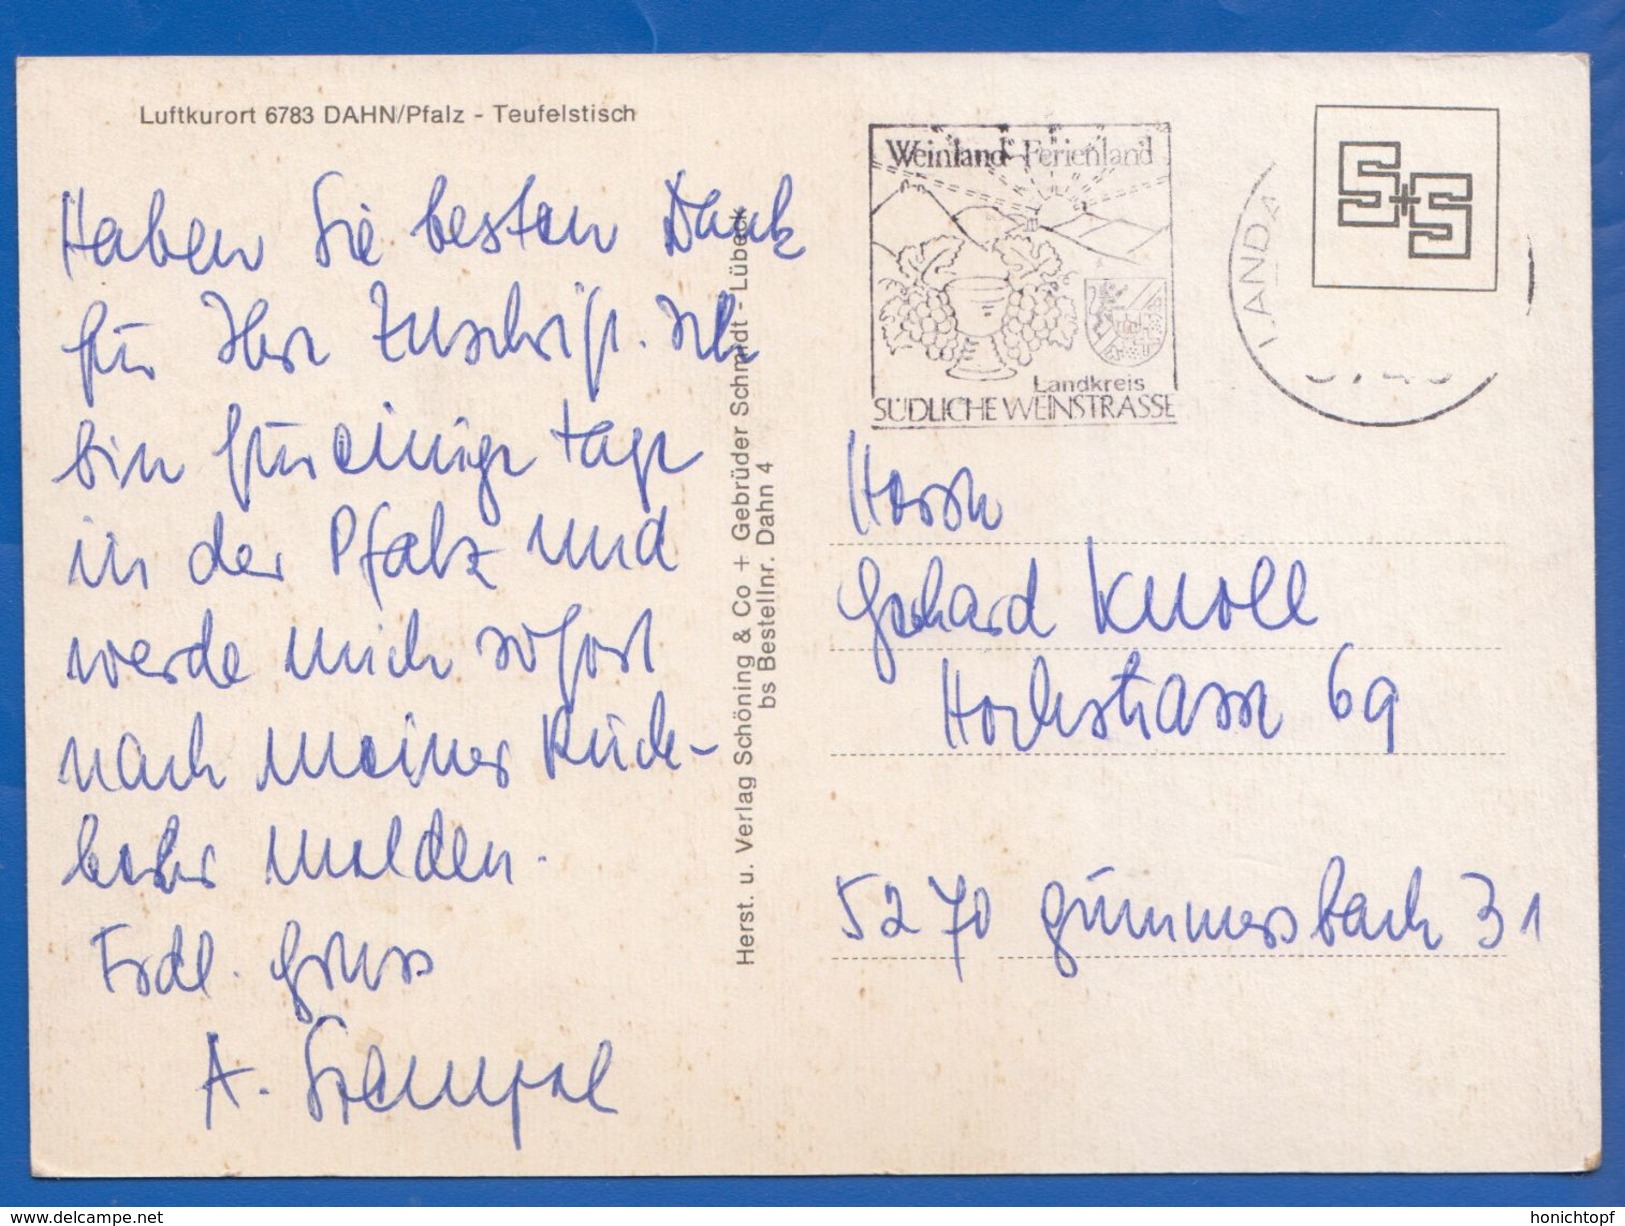 Luftkurort 6783 DAHN/Pfalz - Teufelstisch
Haben Sie besten Dank
für Ihre Zuschrift. Ich
bin für einige Tage
in der Pfalz und
werde mich sofort
nach meiner Rück-
kehr melden.
Frdl. Gruss
A. Stempel
Herst. u. Verlag Schöning & Co + Gebrüder Schmidt - Lübeck
bs Bestellnr. Dahn 4
Weinland Ferienland
Landkreis
SÜDLICHE WEINSTRASSE
LANDA
S+S
Herrn
Gerhard Knoll
Hochstrasse 69
5270 Gummersbach 31
delcampe.net
honichtopf